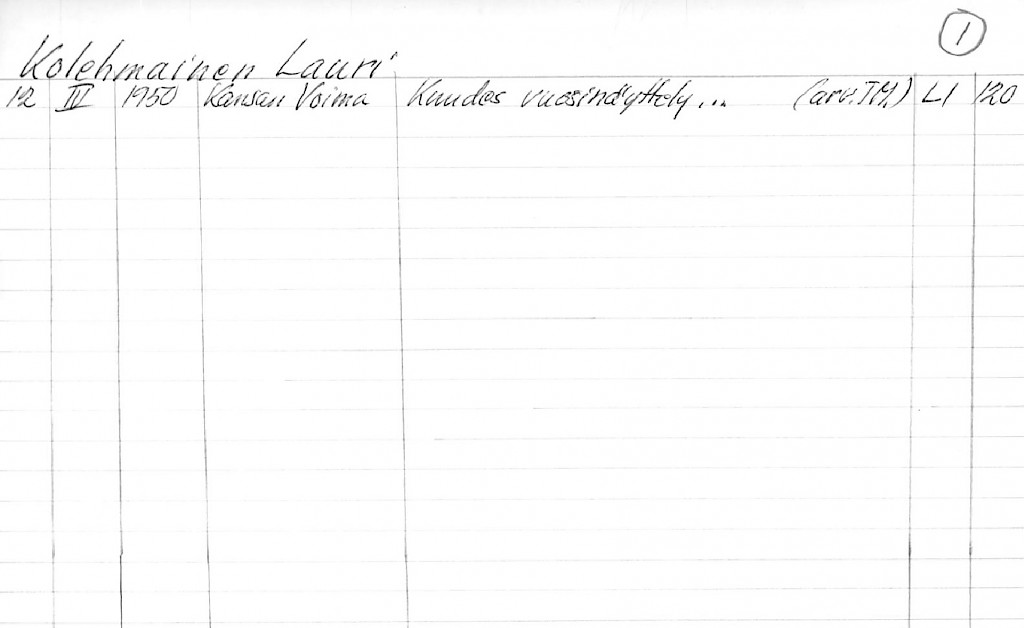 1
Kolehmainen Lauri
12 III 1950 Kansan Voima Kuudes vuosinäyttely... (arv. T.M.) LI 120